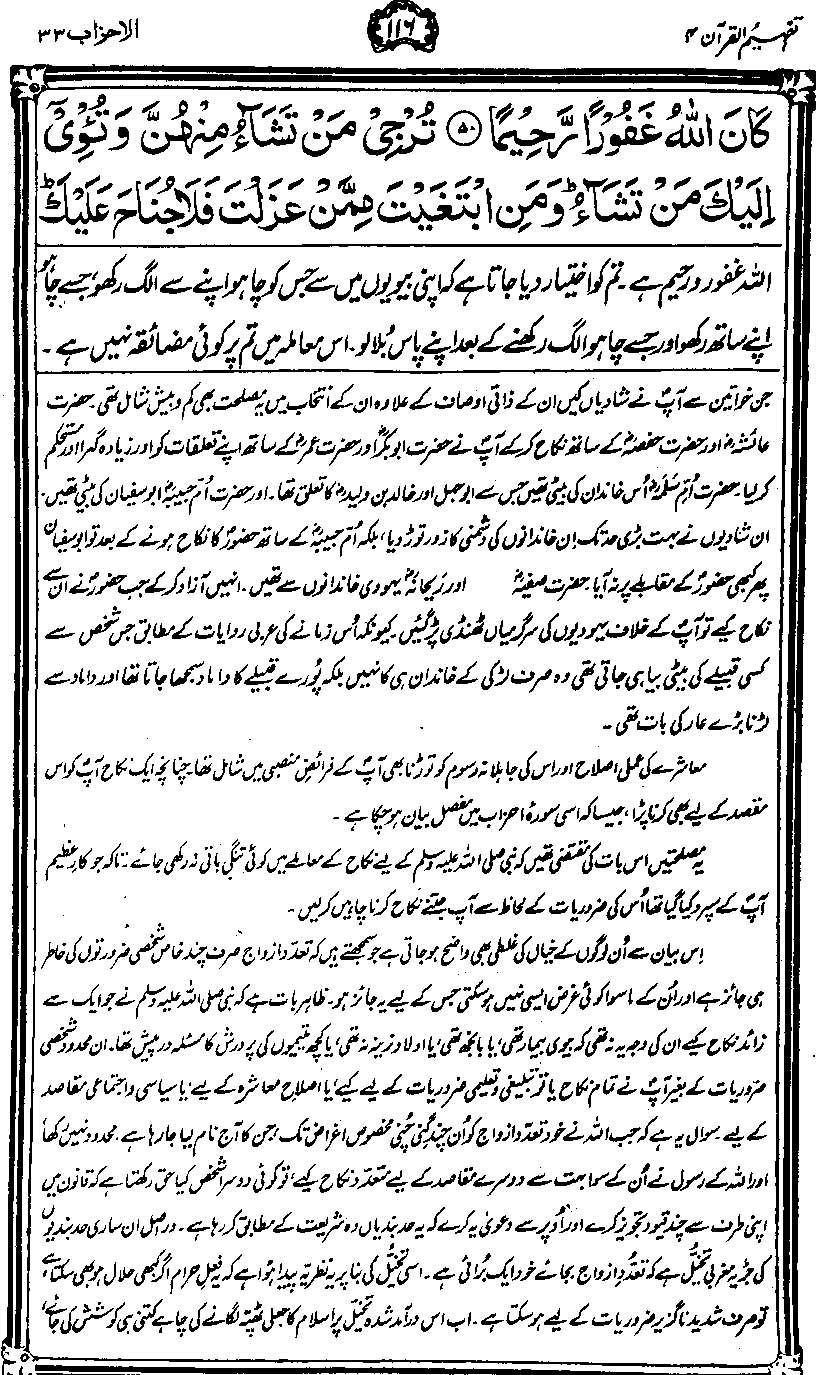 تفہیم القرآن ۴
۱۱۶
الاحزاب ۳۳
كَانَ اللّٰهُ غَفُوْرًا رَّحِيْمًا ۵۰ تُرْجِيْ مَنْ تَشَآءُ مِنْهُنَّ وَ تُـْٔوِيْٓ
اِلَيْكَ مَنْ تَشَآءُ ؕ وَ مَنِ ابْتَغَيْتَ مِمَّنْ عَزَلْتَ فَلَا جُنَاحَ عَلَيْكَ ؕ
اللہ غفور و رحیم ہے۔ تم کو اختیار دیا جاتا ہے کہ اپنی بیویوں میں سے جس کو چاہو اپنے سے الگ رکھو، جسے چاہو
اپنے ساتھ رکھو اور جسے چاہو الگ رکھنے کے بعد اپنے پاس بُلا لو۔ اس معاملہ میں تم پر کوئی مضائقہ نہیں ہے۔
جن خواتین سے آپؐ نے شادیاں کیں ان کے ذاتی اوصاف کے علاوہ ان کے انتخاب میں یہ مصلحت بھی کم و بیش شامل تھی۔ حضرت
عائشہؓ اور حضرت حفصہؓ کے ساتھ نکاح کر کے آپؐ نے حضرت ابوبکرؓ اور حضرت عمرؓ کے ساتھ اپنے تعلقات کو اور زیادہ گہرا اور مستحکم
کر لیا۔ حضرت اُمّ سلمہؓ اُس خاندان کی بیٹی تھیں جس سے ابوجہل اور خالد بن ولیدؓ کا تعلق تھا۔ اور حضرت اُمّ حبیبہؓ ابوسفیان کی بیٹی تھیں۔
ان شادیوں نے بہت بڑی حد تک اِن خاندانوں کی دشمنی کا زور توڑ دیا، بلکہ اُم حبیبہؓ کے ساتھ حضورؐ کا نکاح ہونے کے بعد تو ابوسفیان
پھر کبھی حضورؐ کے مقابلے پر نہ آیا۔ حضرت صفیہؓ اور ریحانہؓ یہودی خاندانوں سے تھیں۔ انہیں آزاد کر کے جب حضورؐ نے ان سے
نکاح کیے تو آپؐ کے خلاف یہودیوں کی سرگرمیاں ٹھنڈی پڑ گئیں۔ کیونکہ اُس زمانے کی عربی روایات کے مطابق جس شخص سے
کسی قبیلے کی بیٹی بیاہی جاتی تھی وہ صرف لڑکی کے خاندان ہی کا نہیں بلکہ پُورے قبیلے کا داماد سمجھا جاتا تھا اور داماد سے
لڑنا بڑے عار کی بات تھی۔
معاشرے کی عملی اصلاح اور اس کی جاہلانہ رسوم کو توڑنا بھی آپؐ کے فرائضِ منصبی میں شامل تھا۔ چنانچہ ایک نکاح آپؐ کو اس
مقصد کے لیے بھی کرنا پڑا، جیسا کہ اسی سورۂ احزاب میں مفصل بیان ہو چکا ہے۔
یہ مصلحتیں اس بات کی مقتضی تھیں کہ نبی صلی اللہ علیہ وسلم کے لیے نکاح کے معاملے میں کوئی تنگی باقی نہ رکھی جائے، تاکہ جو کارِ عظیم
آپؐ کے سپرد کیا گیا تھا اُس کی ضروریات کے لحاظ سے آپ جتنے نکاح کرنا چاہیں کر لیں۔
اِس بیان سے اُن لوگوں کے خیال کی غلطی بھی واضح ہو جاتی ہے جو سمجھتے ہیں کہ تعدّدِ ازواج صرف چند خاص شخصی ضرورتوں کی خاطر
ہی جائز ہے اور اُن کے ماسوا کوئی غرض ایسی نہیں ہو سکتی جس کے لیے یہ جائز ہو۔ ظاہر بات ہے کہ نبی صلی اللہ علیہ وسلم نے جو ایک سے
زائد نکاح کیے ان کی وجہ یہ نہ تھی کہ بیوی بیمار تھی، یا بانجھ تھی، یا اولاد نرینہ نہ تھی، یا کچھ یتیموں کی پرورش کا مسئلہ درپیش تھا۔ ان محدود شخصی
ضروریات کے بغیر آپؐ نے تمام نکاح یا تو تبلیغی و تعلیمی ضروریات کے لیے کیے، یا اصلاح معاشرہ کے لیے، یا سیاسی و اجتماعی مقاصد
کے لیے۔ سوال یہ ہے کہ جب اللہ نے خود تعدّدِ ازواج کو اُن چند گِنی چُنی مخصوص اغراض تک، جن کا آج نام لیا جا رہا ہے، محدود نہیں رکھا
اور اللہ کے رسول نے اُن کے سوا بہت سے دوسرے مقاصد کے لیے متعدّد نکاح کیے، تو کوئی دوسرا شخص کیا حق رکھتا ہے کہ قانون میں
اپنی طرف سے چند قیود تجویز کرے اور اُوپر سے دعویٰ یہ کرے کہ یہ حد بندیاں وہ شریعت کے مطابق کر رہا ہے۔ دراصل ان ساری حد بندیوں
کی جڑ یہ مغربی تخیّل ہے کہ تعدّدِ ازواج بجائے خود ایک بُرائی ہے۔ اسی تخیُّل کی بنا پر یہ نظریہ پیدا ہوا ہے کہ یہ فعلِ حرام اگر کبھی حلال ہو بھی سکتا ہے
تو صرف شدید ناگزیر ضروریات کے لیے ہو سکتا ہے۔ اب اس درآمد شدہ تخیّل پر اسلام کا جعلی ٹھپّہ لگانے کی چاہے کتنی ہی کوشش کی جائے،